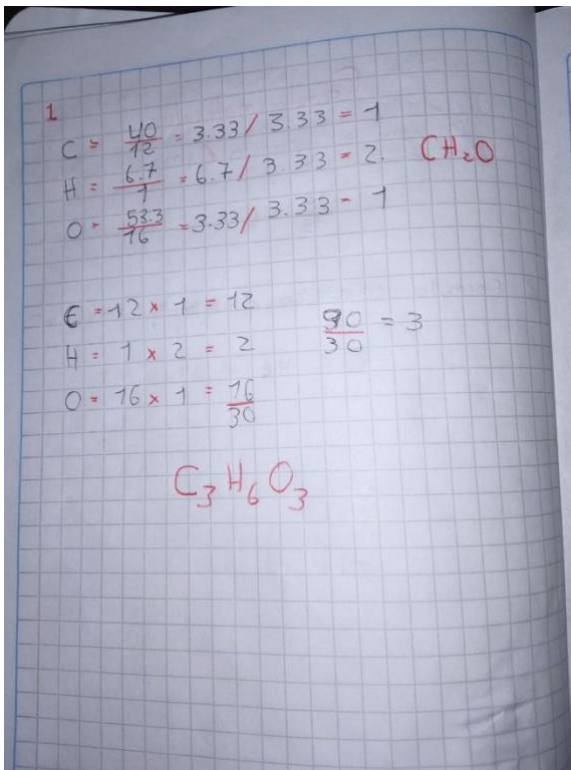 1
C = 40/12 = 3.33 / 3.33 = 1
H = 6.7/1 = 6.7 / 3.33 = 2. CH₂O
O = 53.3/16 = 3.33 / 3.33 = 1
C = 12 × 1 = 12
H = 1 × 2 = 2 90/30 = 3
O = 16 × 1 = 16
30
C₃H₆O₃